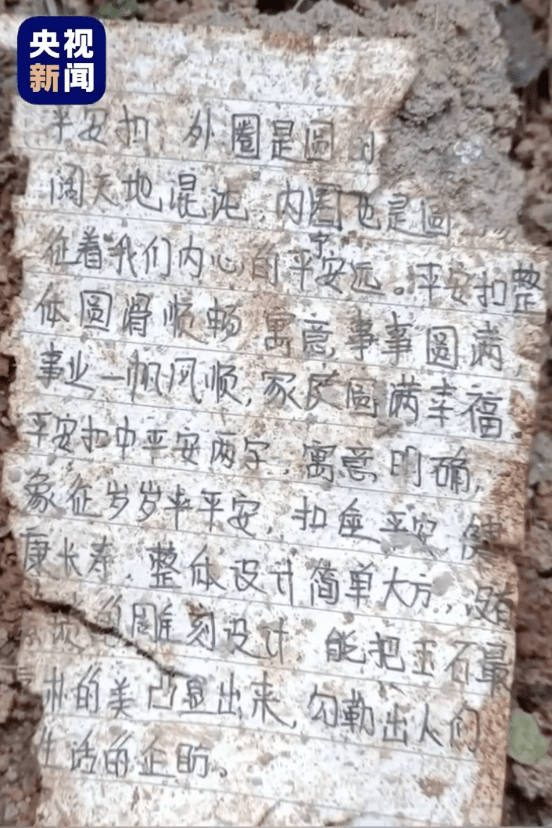 央视
新闻
平安扣 外圈是圆
阔天地混沌 内圈也是圆
征着我们内心的平安宁远。平安扣整
体圆滑顺畅 寓意事事圆满
事业一帆风顺,家庭圆满幸福
平安扣中平安两字,寓意明确,
象征岁岁年平安,扣座平安 健
康长寿,整体设计简单大方,没有
的雕刻设计 能把玉石最
的美凸显出来,勾勒出人们
生活的企盼。